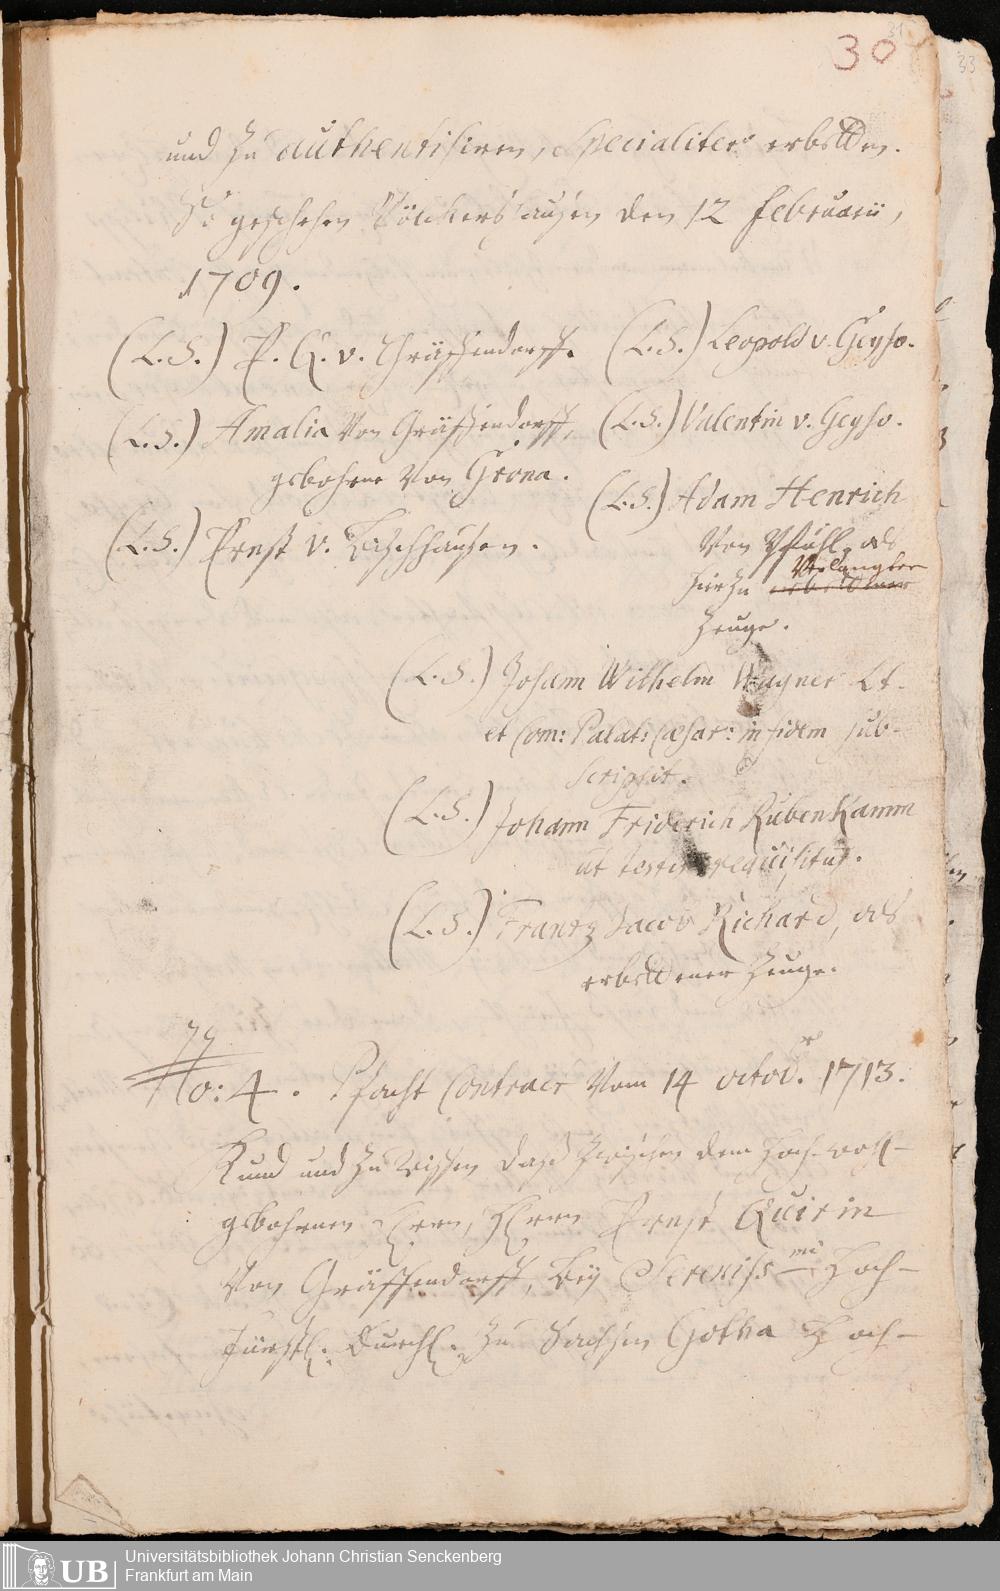 31
30
33
und zu authentisiren, specialiter erbetten.
So geschehen Völckershausen den 12 Februarii,
1709.
(L.S.) E. Q. v. Gräffendorff.
(L.S.) Leopold v. Geyso.
(L.S.) Amalia Von Gräffendorff,
gebohrne Von Grona.
(L.S.) Valentin v. Geyso.
(L.S.) Ernst v.
(L.S.) Adam Henrich
Von Pfuhl, als
hierzu erbettener Verlangter
Zeuge.
(L.S.) Johann Wilhelm Wagner Lt.
et Com: Palat: Cæsar: in fidem sub-
scripsit.
(L.S.) Johann Friderich RübenKamm
ut testis requisitus.
(L.S.) Frantz Jacob Richard, als
erbettener Zeuge.
No: 4. Pfacht Contract Vom 14 octobr. 1713.
Kund und zu wissen daß zwischen dem Hoch-wohl-
gebohrnen Herrn, Herrn Ernst Quirin
Von Gräffendorff, bey Sereniss-mi Hoch-
Fürstl. Durchl. zu Sachsen Gotha Hoch-
Universitätsbibliothek Johann Christian Senckenberg
Frankfurt am Main
UB